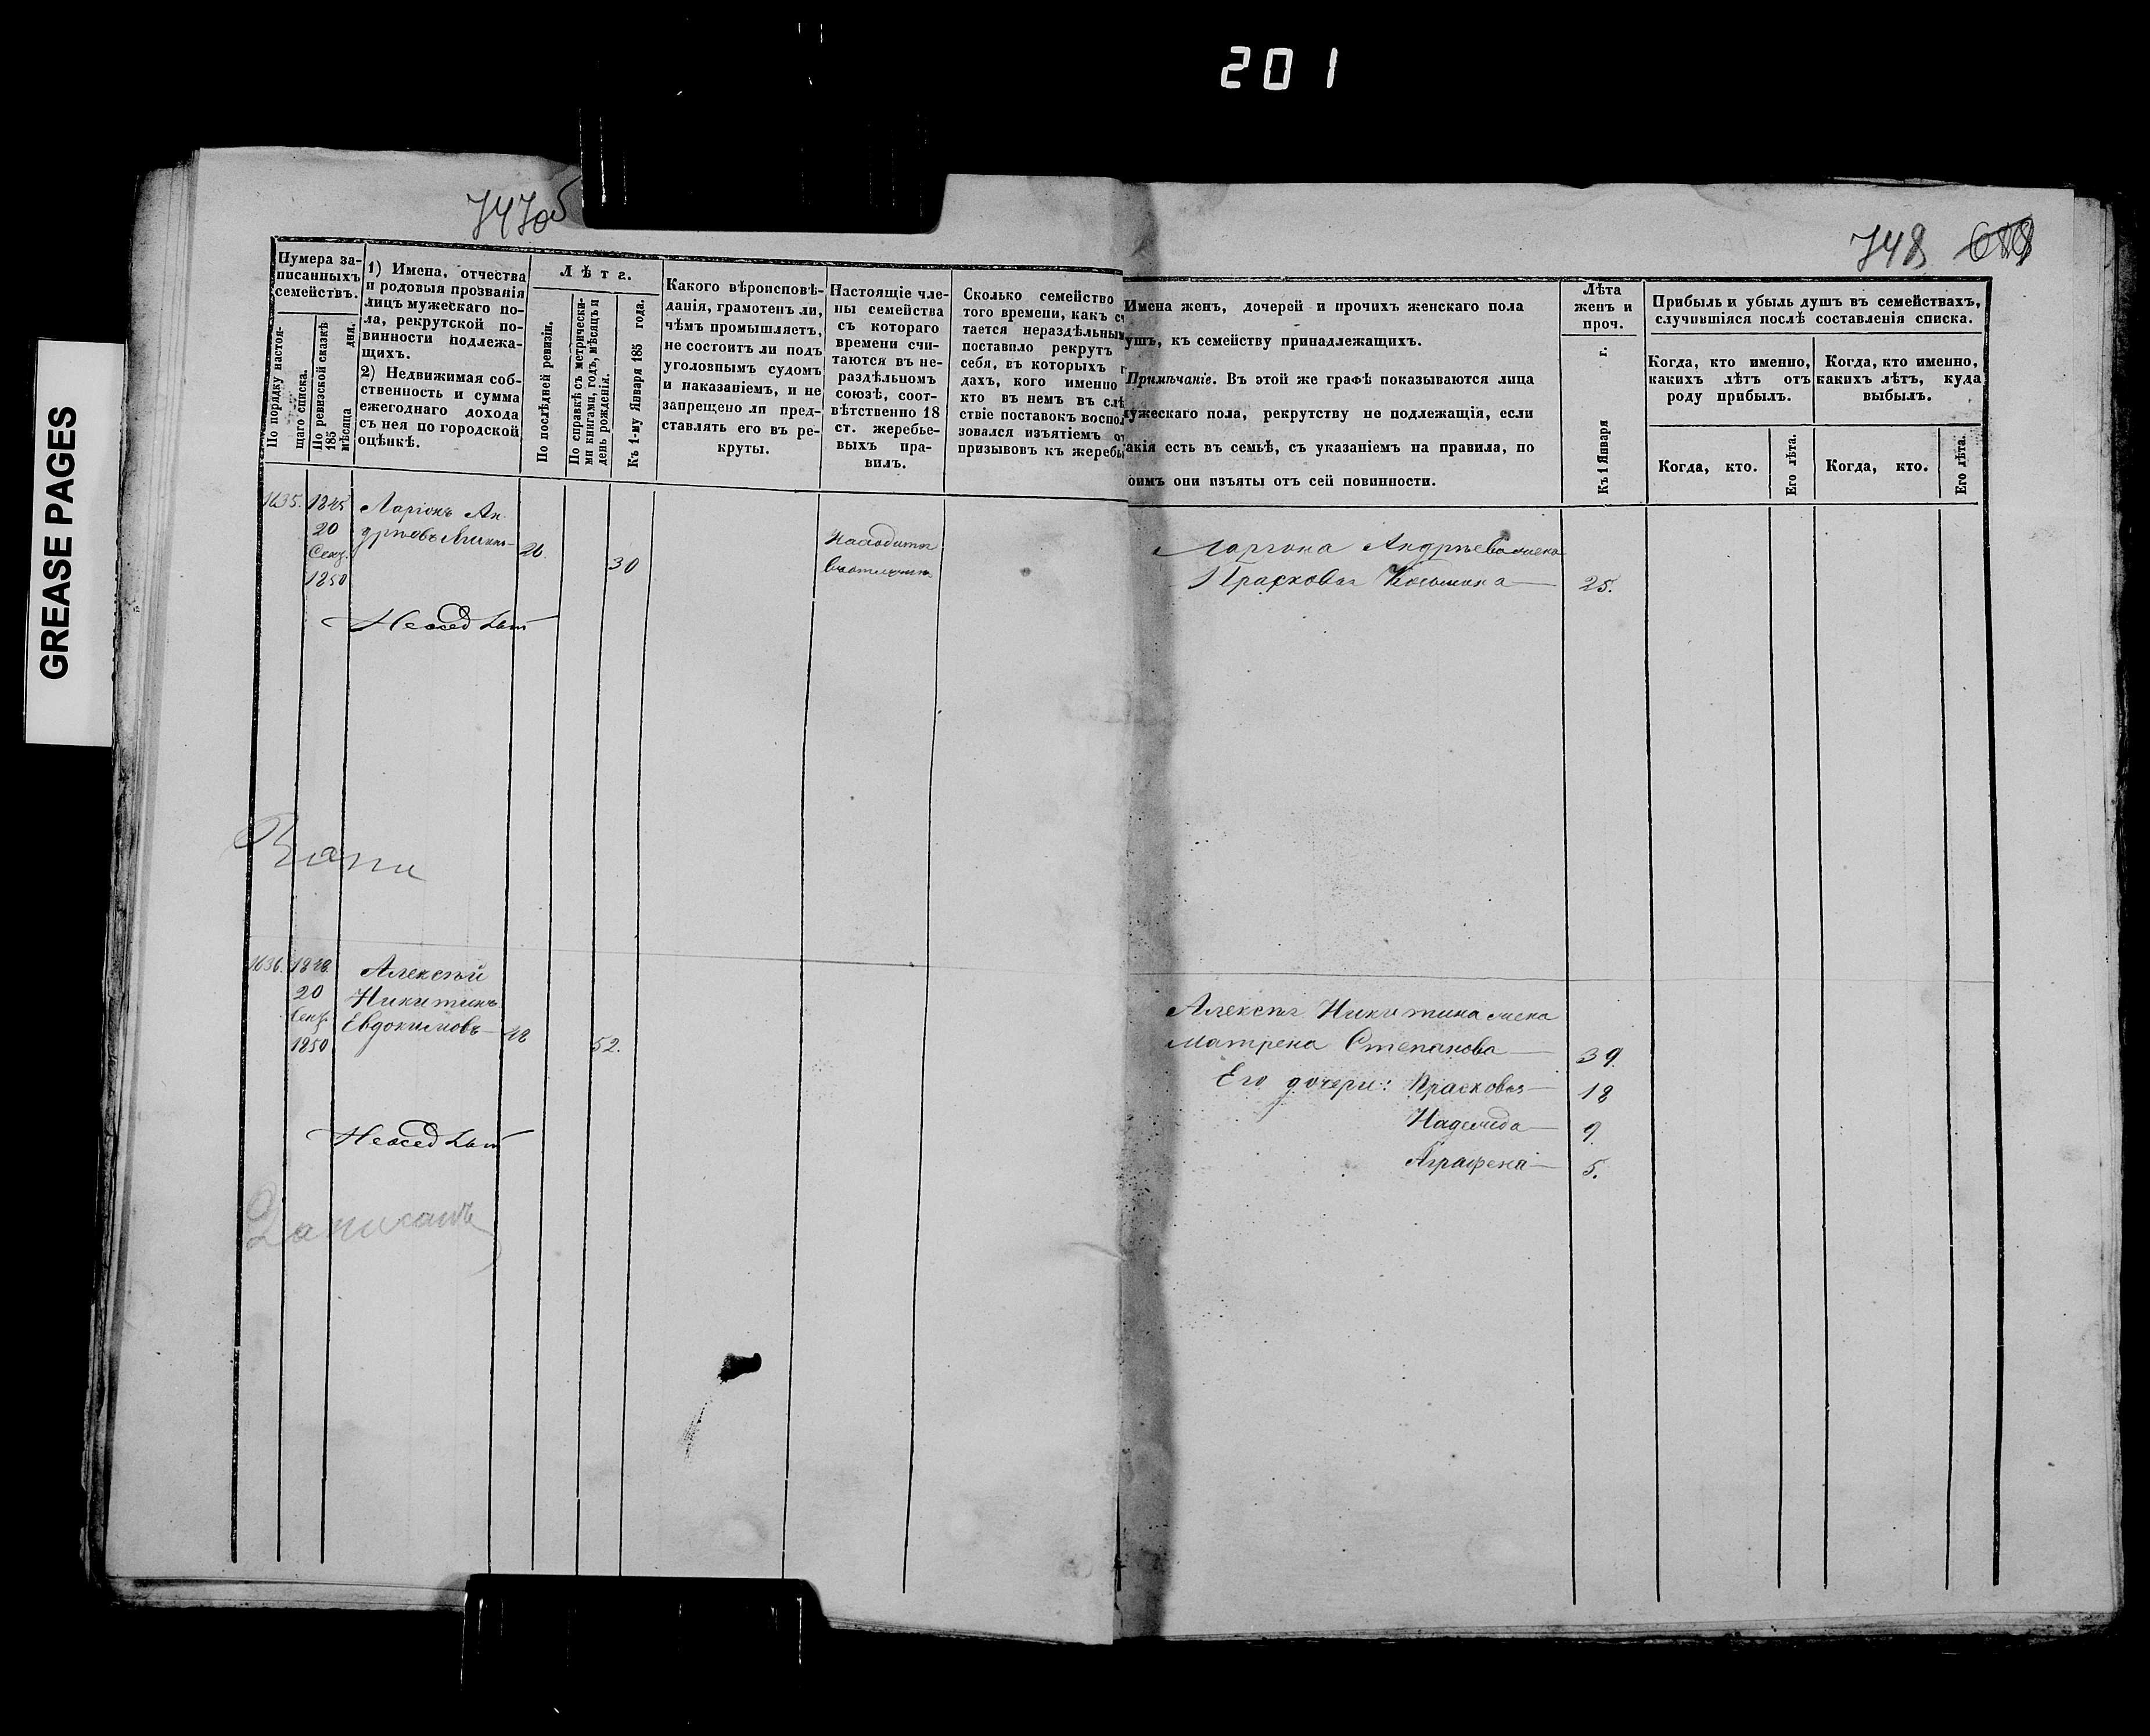 201
GREASE PAGES
747об
748
Нумера за-
писанныхъ
семействъ.
По порядку настоя-
щаго списка.
По ревизской сказкѣ
185 мѣсяца дня.
1) Имена, отчества
и родовыя прозванія
лицъ мужескаго по-
ла, рекрутской по-
винности подлежа-
щихъ.
2) Недвижимая соб-
ственность и сумма
ежегоднаго дохода
съ нея по городской
оцѣнкѣ.
Лѣта.
По послѣдней ревизіи.
По справкѣ съ метрически-
ми книгами, годъ, мѣсяцъ и
день рожденія.
Къ 1-му Января 185 года.
Какого вѣроисповѣ-
данія, грамотенъ ли,
чѣмъ промышляетъ,
не состоитъ ли подъ
уголовнымъ судомъ
и наказаніемъ, и не
запрещено ли пред-
ставлять его въ ре-
круты.
Настоящіе чле-
ны семейства
съ котораго
времени счи-
таются въ не-
раздѣльномъ
союзѣ, соот-
вѣтственно 18
ст. жеребье-
выхъ пра-
вилъ.
Сколько семейство
того времени, какъ сч
тается нераздѣльным
поставило рекрутъ
себя, въ которыхъ г
дахъ, кого именно
кто въ немъ въ слѣ
ствіе поставокъ воспол
зовался изъятіемъ от
призывовъ къ жеребь
Имена женъ, дочерей и прочихъ женскаго пола
ушъ, къ семейству принадлежащихъ.
Примѣчаніе. Въ этой же графѣ показываются лица
ужескаго пола, рекрутству не подлежащія, если
акія есть въ семьѣ, съ указаніемъ на правила, по
оимъ они изъяты отъ сей повинности.
Лѣта
женъ и
проч.
Къ 1 Января г.
Прибыль и убыль душъ въ семействахъ,
случившіяся послѣ составленія списка.
Когда, кто именно,
какихъ лѣтъ отъ
роду прибылъ.
Когда, кто именно,
какихъ лѣтъ, куда
выбылъ.
Когда, кто.
Его лѣта.
Когда, кто.
Его лѣта.
1635.
20
1850
Ларіонъ Ан
26.
30
Ларіона Андрѣева жена
Прасковья 25.
1636.
20
1850
Алексѣй
Никитинъ
Евдокимовъ 48
52.
Алексѣя Никитина жена
Матрена Степанова 39.
Его дочери: Прасковья 18
Надежда 9.
Аграфена 5.